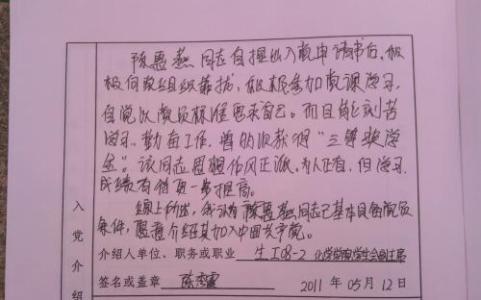 陈惠燕同志自提出入党申请书后，积
极向党组织靠拢，积极参加党课学习，
自觉以党员标准要求自己。而且能刻苦
学习，勤奋工作，曾的收获得"三等奖学
金"。该同志思想作风正派，为人正直，但学习
成绩有待更一步提高。
综上所述，我认为陈惠燕同志已基本具备党员
条件，愿意介绍其加入中国共产党。
入党介绍
介绍人单位、职务或职业 生工08-2 化学学院学生会副主席
签名或盖章 陈秀霞 2011 年 05 月 12 日